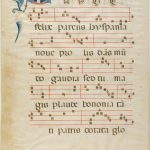 felix parens hyspania
noue prolis das mū
do gaudia sed tu ma
gis plaude bononia tā
ti patris dotata glo